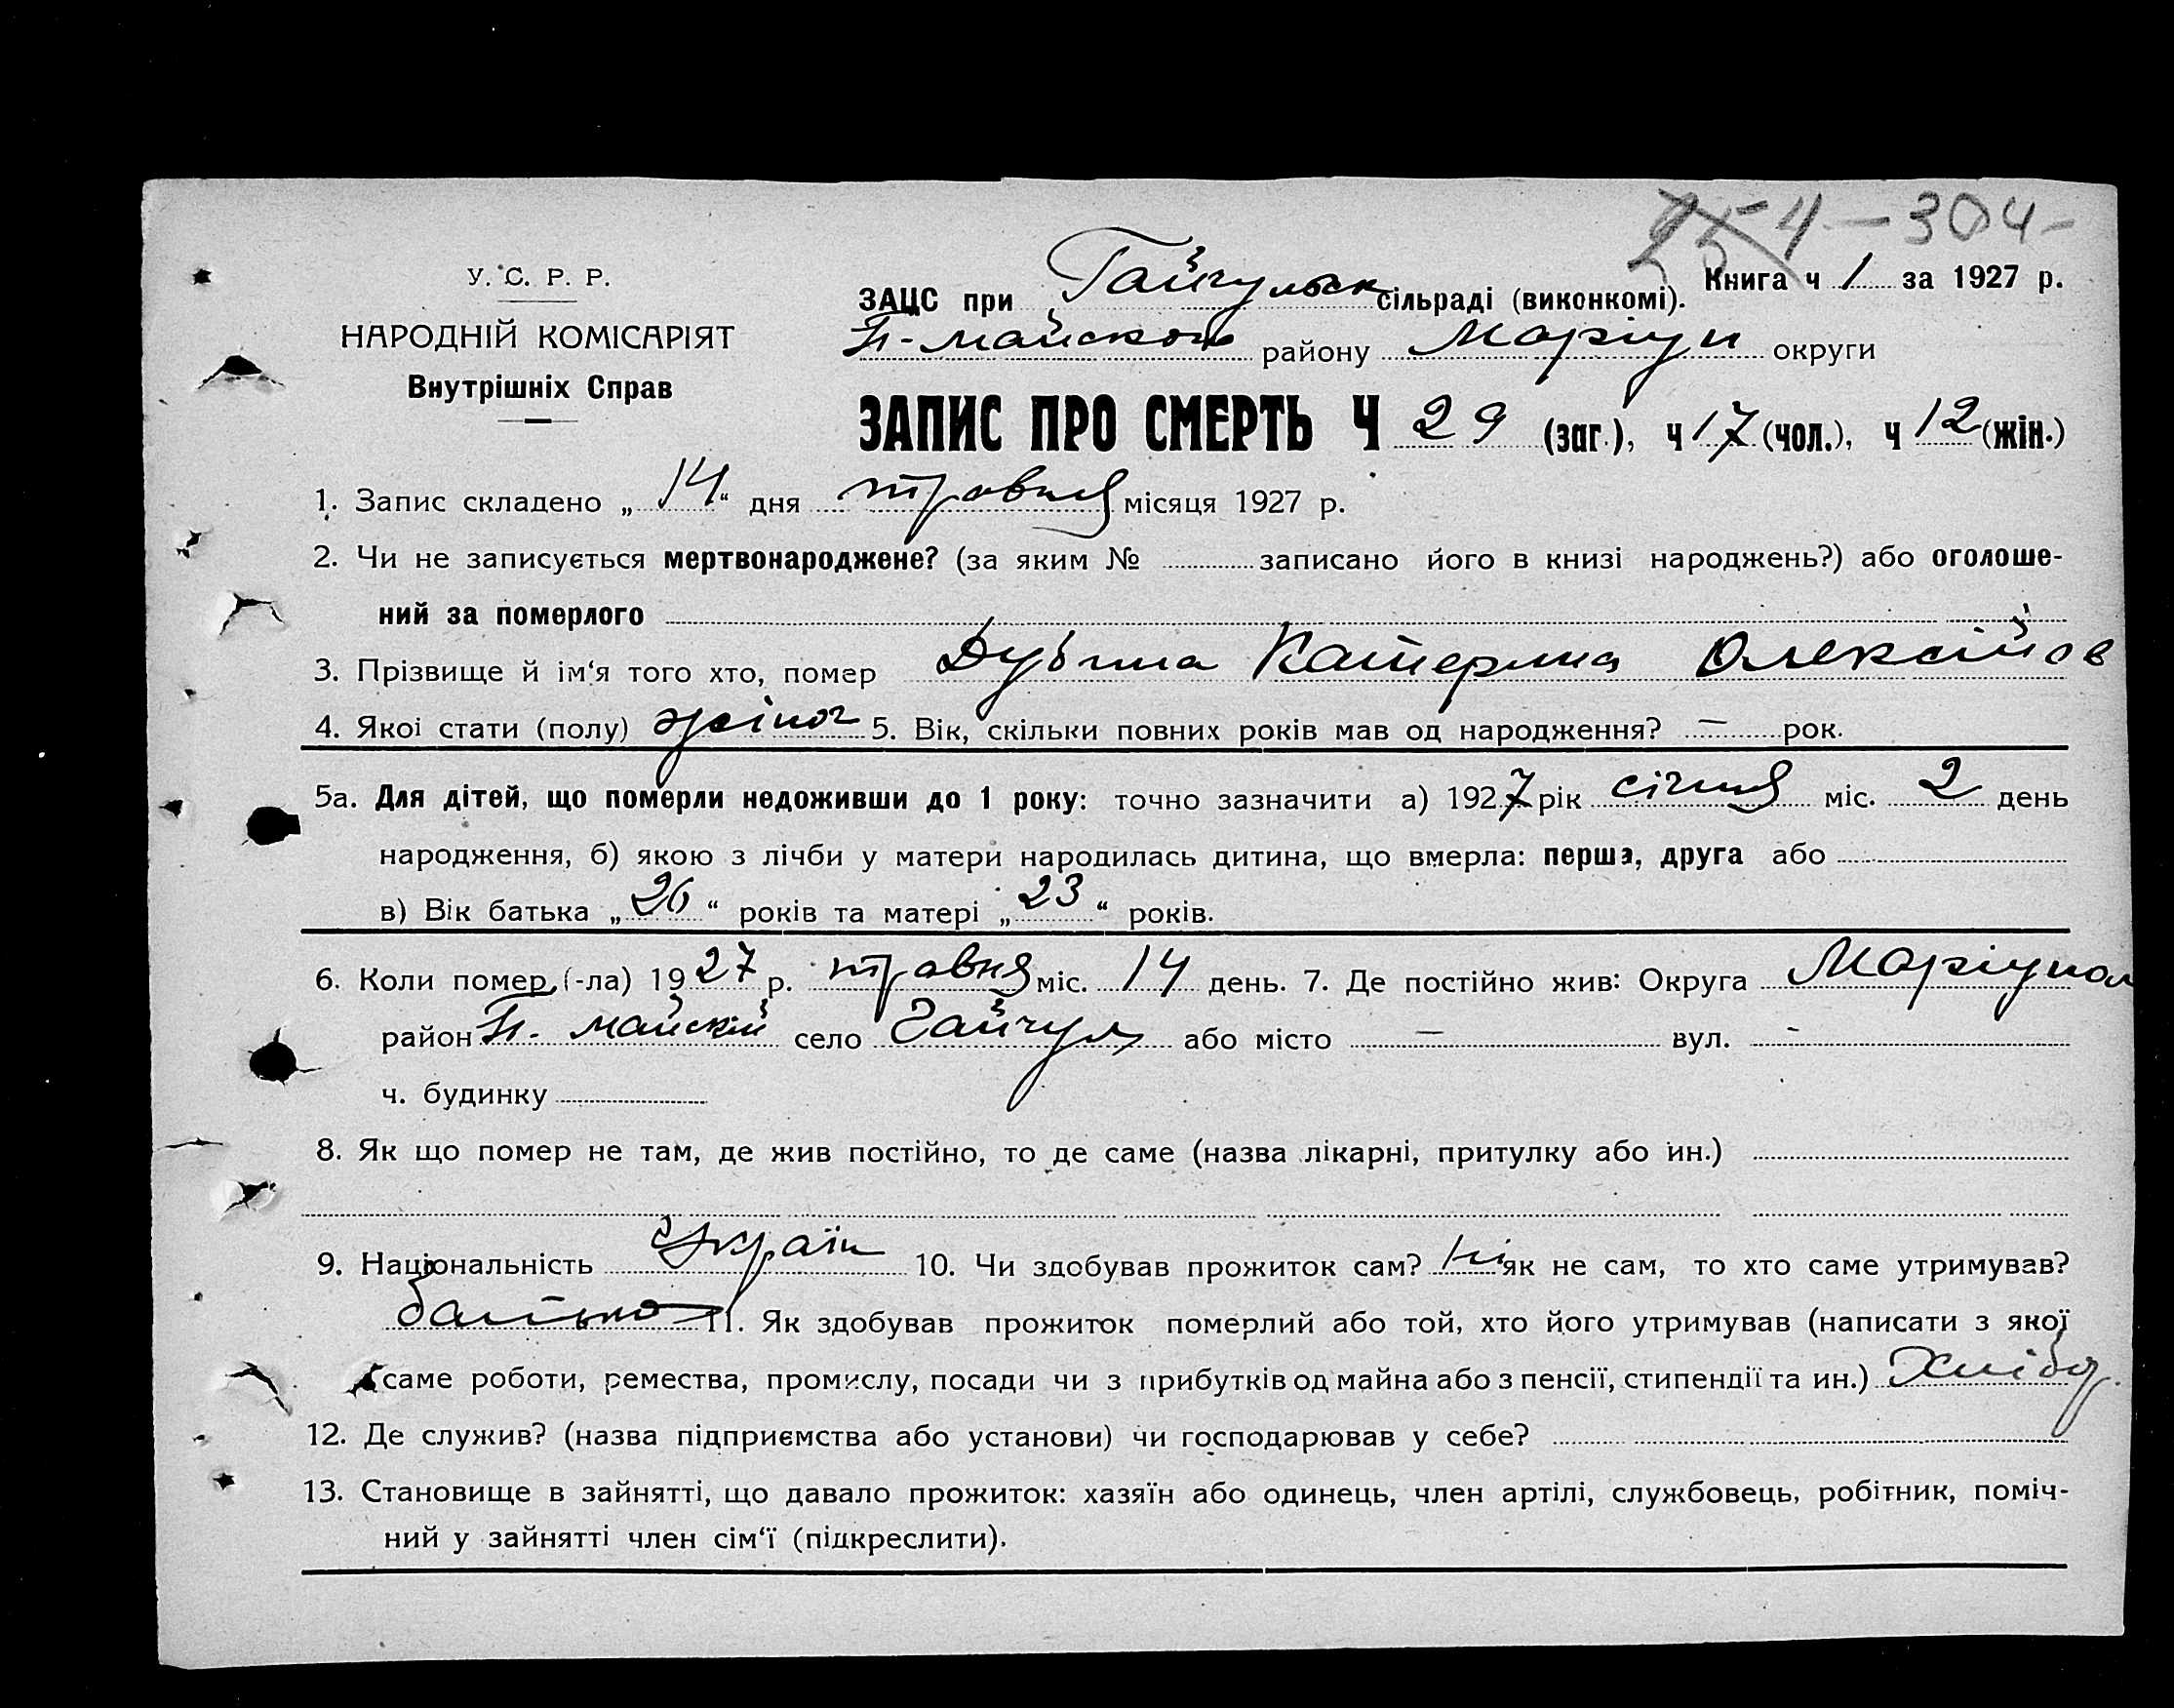 254 — 304 —
У. С. Р. Р.
НАРОДНІЙ КОМІСАРІЯТ
Внутрішніх Справ
Книга ч 1 за 1927 р.
ЗАЦС при Гайчульск сільраді (виконкомі).
П-майского району Маріуп округи
ЗАПИС ПРО СМЕРТЬ Ч 29 (заг.), ч 17 (чол.), ч 12 (жін.)
1. Запис складено „14“ дня травня місяця 1927 р.
2. Чи не записується мертвонароджене? (за яким № записано його в книзі народжень?) або оголоше-
ний за померлого
3. Прізвище й ім'я того хто, помер Дубина Катерина Олексійов
4. Якої стати (полу) жіноч 5. Вік, скільки повних років мав од народження? — рок.
5а. Для дітей, що померли недоживши до 1 року: точно зазначити а) 1927 рік січня міс. 2 день
народження, б) якою з лічби у матери народилась дитина, що вмерла: перша, друга або
в) Вік батька „26“ років та матері „23“ років.
6. Коли помер (-ла) 1927 р. травня міс. 14 день. 7. Де постійно жив: Округа Маріупол
район П. майский село Гайчул або місто — вул. -
ч. будинку
8. Як що помер не там, де жив постійно, то де саме (назва лікарні, притулку або ин.)
9. Національність Україн 10. Чи здобував прожиток сам? Ні як не сам, то хто саме утримував?
батько 11. Як здобував прожиток померлий або той, хто його утримував (написати з якої
саме роботи, ремества, промислу, посади чи з прибутків од майна або з пенсії, стипендії та ин.) Хлібор.
12. Де служив? (назва підприємства або установи) чи господарював у себе?
13. Становище в зайнятті, що давало прожиток: хазяїн або одинець, член артілі, службовець, робітник, поміч-
ний у зайнятті член сім'ї (підкреслити).